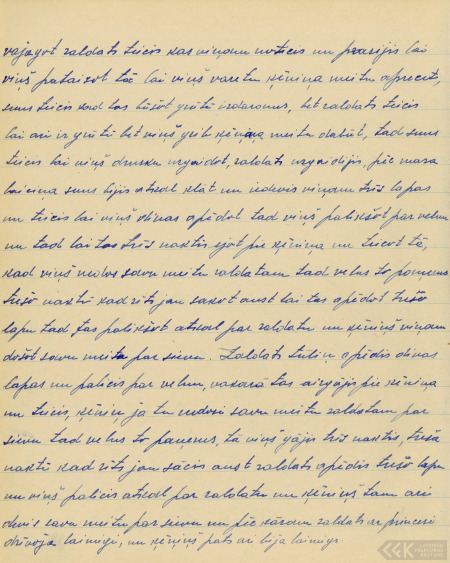 vajagot zaldats teicis kas viņam noticis un prasijis lai
viņš pataisot tā lai viņš varētu ķēniņa meitu aprecēt,
suns teicis kad tas būšot grūti izdarams, bet zaldats teicis
lai ari ir grūti bet viņš grib ķēniņa meitu dabūt, tad suns
teicis lai viņš drusku uzgaidot, zaldats uzgaidijis, pēc maza
laiciņa suns bijis atkal klāt un iedevis viņam trīs lapas
un teicis lai viņš divas apēdot tad viņš palikšot par velnu
un tad lai tas trīs naktis ejot pie ķēniņa un teicot tā,
kad viņš nedos savu meitu zaldatam tad velns to paņems
trešo nakti kad rīts jau sakot aust lai tas apēdot trešo
lapu tad tas palikšot atkal par zaldatu un ķēniņš viņam
došot savu meitu par sievu. Zaldats tūliņ apēdis divas
lapas un palicis par velnu, vakarā tas aizgājis pie ķēniņa
un teicis, ķēniņ ja tu nedosi savu meitu zaldatam par
sievu tad velns to paņems, tā viņš gājis trīs naktis, trešā
naktī kad rīts jau sācis aust zaldats apēdis trešo lapu
un viņš palicis atkal par zaldatu un ķēniņš tam ari
devis savu meitu par sievu un pēc kāzam zaldats ar princesi
dzīvoja laimigi, un ķēniņš pats ari bija laimigs.
LFK